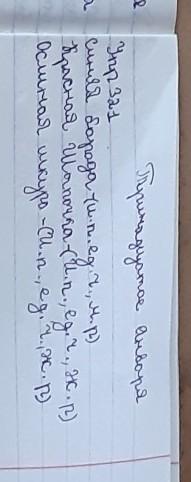 Тринадцатое января
Упр 321
синяя борода-(и.п.ед.ч.,м.р)
Красная Шапочка-(И.п.,ед.ч.,ж.р)
Ослиная шкура-(И.п.,ед.ч.,ж.р)